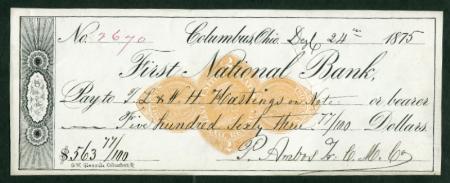 No. 2670 Columbus, Ohio, Dec 24th 1875
First National Bank,
Pay to T L & W. H. Hastings on Note or bearer
Five hundred sixty three 77/100 Dollars.
$563 77/100 P. Ambos Tr. C. M. Co